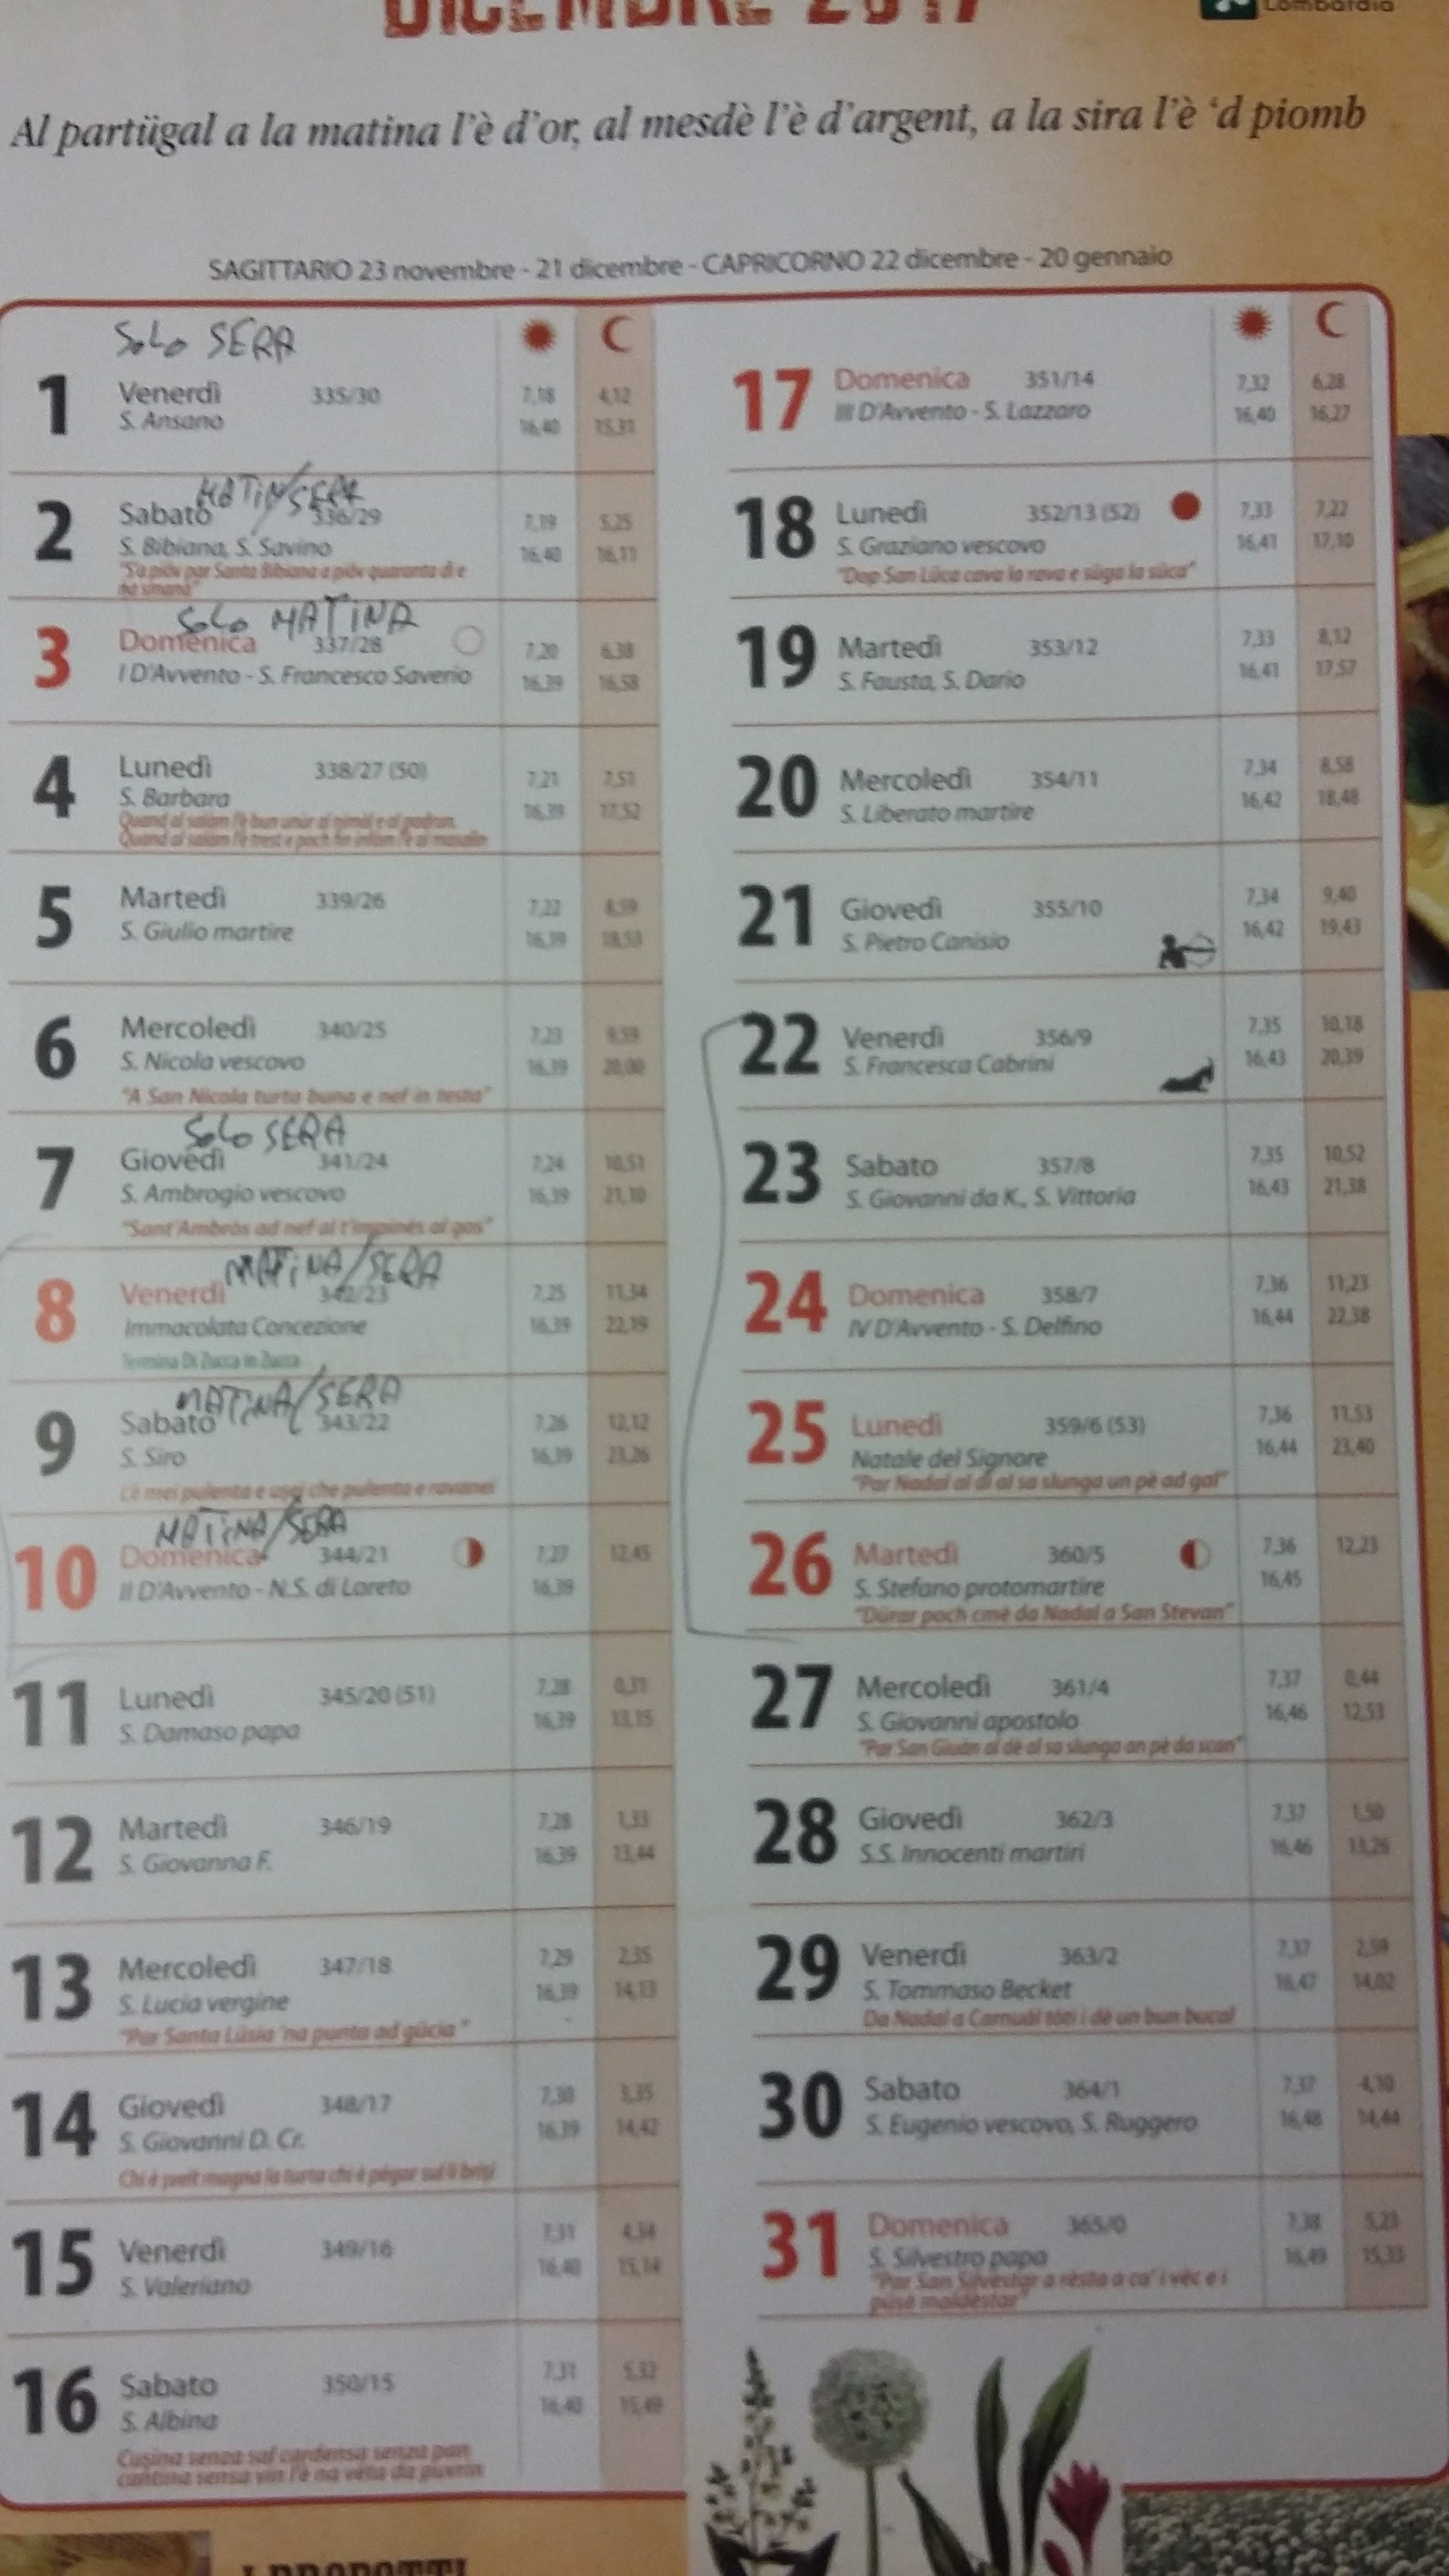 DICEMBRE 2017
Lombardia
Al partügal a la matina l'è d'or, al mesdè l'è d'argent, a la sira l'è 'd piomb
SAGITTARIO 23 novembre - 21 dicembre - CAPRICORNO 22 dicembre - 20 gennaio
SOLO SERA
1 Venerdì 335/30 7,18 4,12
S. Ansano 16,40 15,31
MATIN/SERA
2 Sabato 336/29 7,19 5,25
S. Bibiana, S. Savino 16,40 16,11
"S'a piöv par Santa Bibiana a piöv quaranta dì e
na smana"
SOLO MATINA
3 Domenica 337/28 7,20 6,38
I D'Avvento - S. Francesco Saverio 16,39 16,58
4 Lunedì 338/27 (50) 7,21 7,51
S. Barbara 16,39 17,52
Quand al salam l'è bun
Quand al salam l'è
5 Martedì 339/26 7,22 8,59
S. Giulio martire 16,39 18,53
6 Mercoledì 340/25 7,23 9,59
S. Nicola vescovo 16,39 20,00
"A San Nicola turta buna e nef in testa"
SOLO SERA
7 Giovedì 341/24 7,24 10,51
S. Ambrogio vescovo 16,39 21,10
"Sant'Ambrös ad nef al t'impinés al gos"
MATINA/SERA
8 Venerdì 342/23 7,25 11,34
Immacolata Concezione 16,39 22,19
Termina Di Zucca in Zucca
MATINA/SERA
9 Sabato 343/22 7,26 12,12
S. Siro 16,39 23,26
L'è mei pulenta e usei che pulenta e ravanei
MATINA/SERA
10 Domenica 344/21 7,27 12,45
II D'Avvento - N.S. di Loreto 16,39
11 Lunedì 345/20 (51) 7,28 0,31
S. Damaso papa 16,39 13,15
12 Martedì 346/19 7,28 1,33
S. Giovanna F. 16,39 13,44
13 Mercoledì 347/18 7,29 2,35
S. Lucia vergine 16,39 14,13
"Par Santa Lüsia 'na punta ad gücia"
14 Giovedì 348/17 7,30 3,35
S. Giovanni D. Cr. 16,39 14,42
Chi è svelt magna la turta chi è pégar
15 Venerdì 349/16 7,31 4,34
S. Valeriano 16,40 15,14
16 Sabato 350/15 7,31 5,32
S. Albina 16,40 15,49
Cusina senza sal cardensa senza pan
cantina sensa vin l'è na
17 Domenica 351/14 7,32 6,28
III D'Avvento - S. Lazzaro 16,40 16,27
18 Lunedì 352/13 (52) 7,33 7,22
S. Graziano vescovo 16,41 17,10
"Dop San Lüca cava la rava e süga la süca"
19 Martedì 353/12 7,33 8,12
S. Fausta, S. Dario 16,41 17,57
20 Mercoledì 354/11 7,34 8,58
S. Liberato martire 16,42 18,48
21 Giovedì 355/10 7,34 9,40
S. Pietro Canisio 16,42 19,43
22 Venerdì 356/9 7,35 10,18
S. Francesca Cabrini 16,43 20,39
23 Sabato 357/8 7,35 10,52
S. Giovanni da K., S. Vittoria 16,43 21,38
24 Domenica 358/7 7,36 11,23
IV D'Avvento - S. Delfino 16,44 22,38
25 Lunedì 359/6 (53) 7,36 11,53
Natale del Signore 16,44 23,40
"Par Nadal al dì al sa slunga un pè ad gal"
26 Martedì 360/5 7,36 12,23
S. Stefano protomartire 16,45
"Dürar poch cmè da Nadal a San Stevan"
27 Mercoledì 361/4 7,37 0,44
S. Giovanni apostolo 16,46 12,53
"Par San Giuàn al dè al sa slunga an pè da scan"
28 Giovedì 362/3 7,37 1,50
S.S. Innocenti martiri 16,46 13,26
29 Venerdì 363/2 7,37 2,59
S. Tommaso Becket 16,47 14,02
Da Nadal a Carnuàl töti i dè un bun bucal
30 Sabato 364/1 7,37 4,10
S. Eugenio vescovo, S. Ruggero 16,48 14,44
31 Domenica 365/0 7,38 5,21
S. Silvestro papa 16,49 15,33
"Par San Silvestar a rèsta a ca' i vèc e i
I PRODOTTI